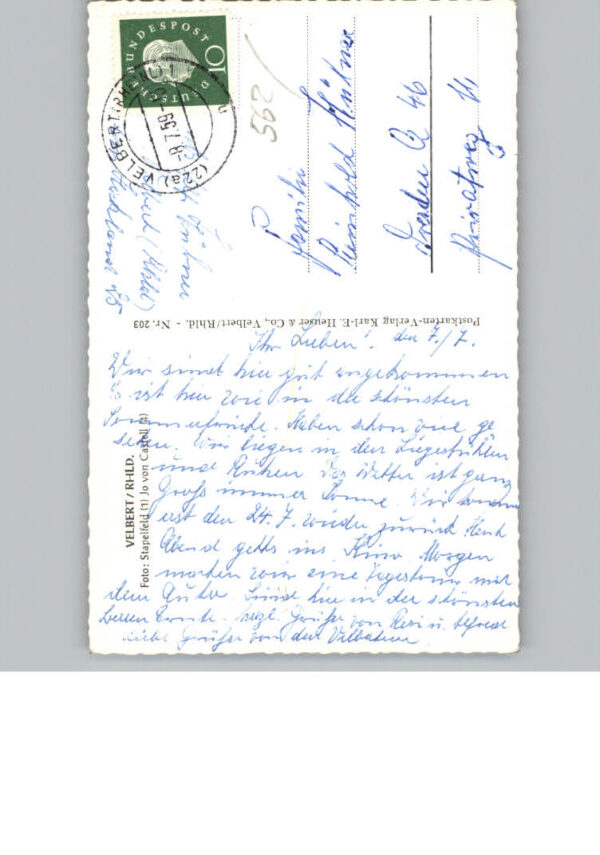 DEUTSCHE BUNDESPOST
10
(22a) VELBERT (RHEINL) 1
-8.7.59
562
Familie
Reinhold Hübner
Dresden A 46
Privatweg 11
Hübner
Velbert (Rhld)
Postkarten-Verlag Karl-E. Heuser & Co., Velbert/Rhld. - Nr. 203
VELBERT / RHLD.
Foto: Stapelfeld (1) Jo von Castell (1)
Ihr Lieben! den 7./7.
Wir sind hier gut angekommen
Es ist hier wie in die schönsten
Sommerfrische. Haben schon viel ge
sehen. Wir liegen in den Liegestühlen
und Ruhen Das Wetter ist ganz
Groß immer Sonne. Wir kommen
erst den 24.7. wieder zurück Heut
Abend gehts ins Kino Morgen
machen wir eine Tagestour mit
dem Auto. Sind hier in der schönsten
Beeren Ernte. herzl. Grüße von Resi u. Alfred
Liebe Grüße von den